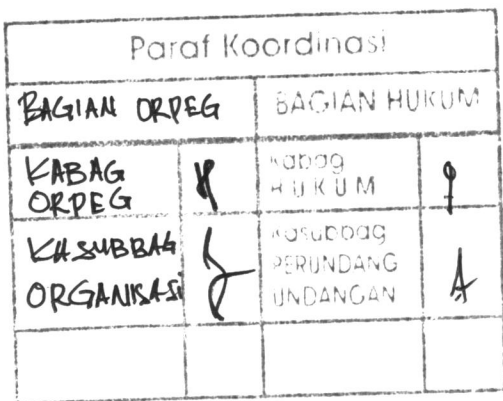 Paraf Koordinasi
BAGIAN ORPEG
BAGIAN HUKUM
KABAG
ORPEG
Kabag
HUKUM
KASUBBAG
ORGANISASI
Kasubbag
PERUNDANG
UNDANGAN